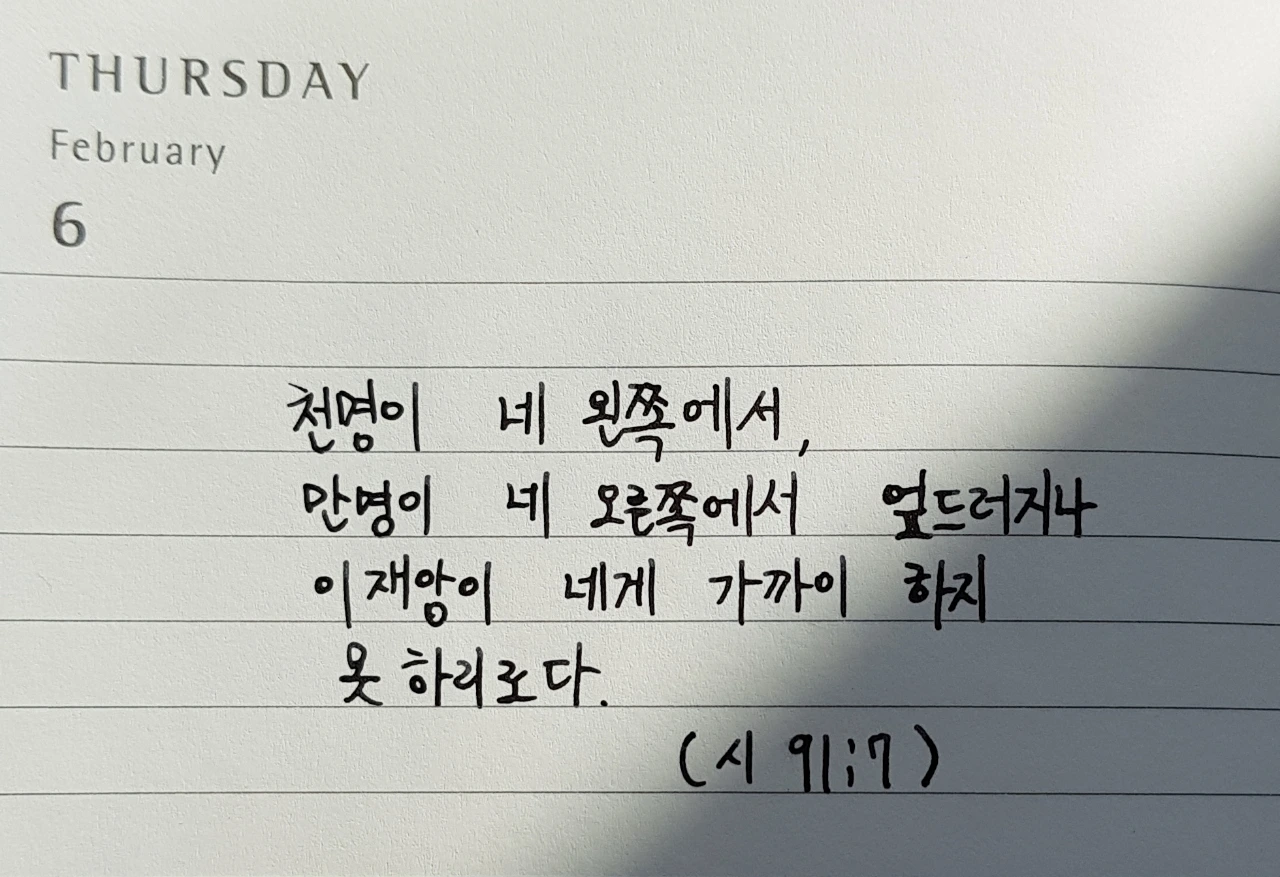 THURSDAY
February
6
천명이 네 왼쪽에서,
만명이 네 오른쪽에서 엎드러지나
이 재앙이 네게 가까이 하지
못 하리로다.
(시 91;7)